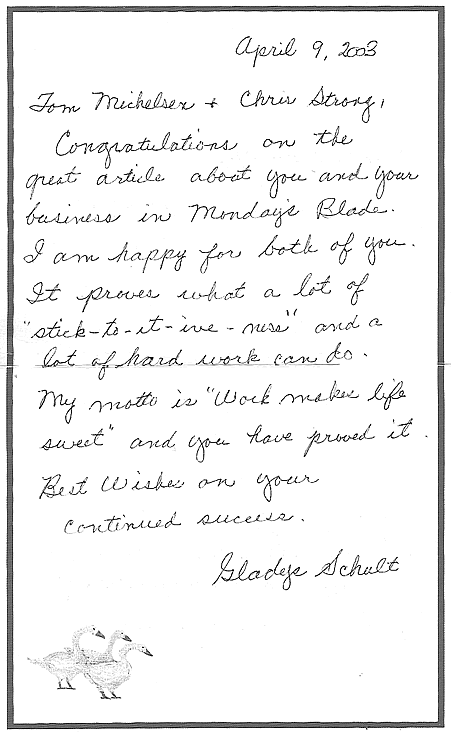 April 9, 2003
Tom Michelsen + Chris Strong,
Congratulations on the
great article about you and your
business in Monday's Blade.
I am happy for both of you.
It proves what a lot of
"stick-to-it-ive-ness" and a
lot of hard work can do.
My motto is "Work makes life
sweet" and you have proved it.
Best Wishes on your
continued success.
Gladys Schult